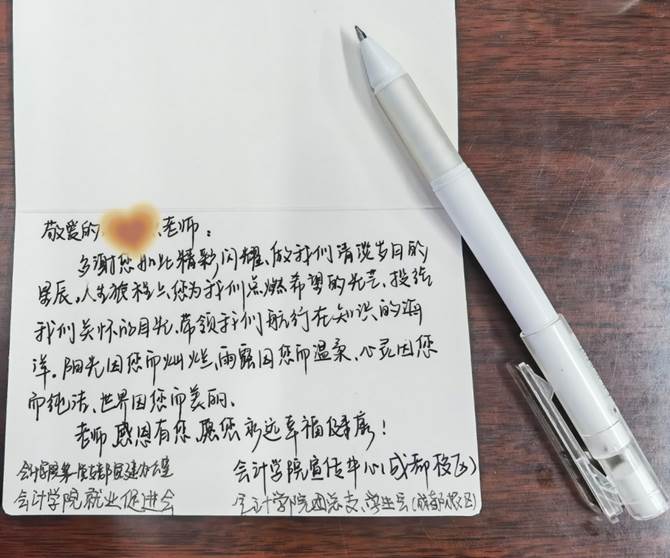 敬爱的 老师：
多谢您如此精彩闪耀、做我们清淡岁月的
星辰。人生旅程上,您为我们点燃希望的光芒、投给
我们关怀的目光、带领我们航行在知识的海
洋、阳光因您而灿烂、雨露因您而温柔、心灵因您
而纯洁、世界因您而美丽。
老师 感恩有您 愿您永远幸福健康！
会计学院第一
会计学院宣传中心(成都校区)
会计学院就业促进会
会计学院团总支、学生会(成都校区)